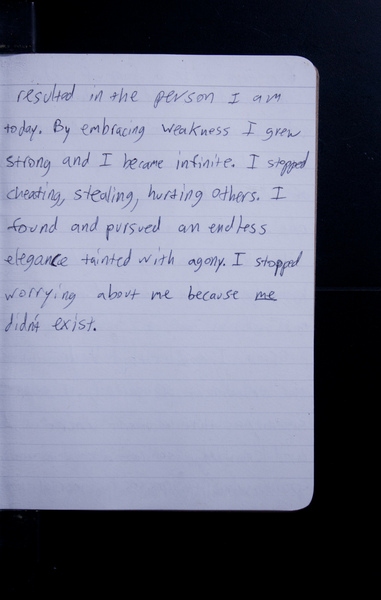 resulted in the person I am
today. By embracing weakness I grew
strong and I became infinite. I stopped
cheating, stealing, hurting others. I
found and pursued an endless
elegance tainted with agony. I stopped
worrying about me because me
didn't exist.